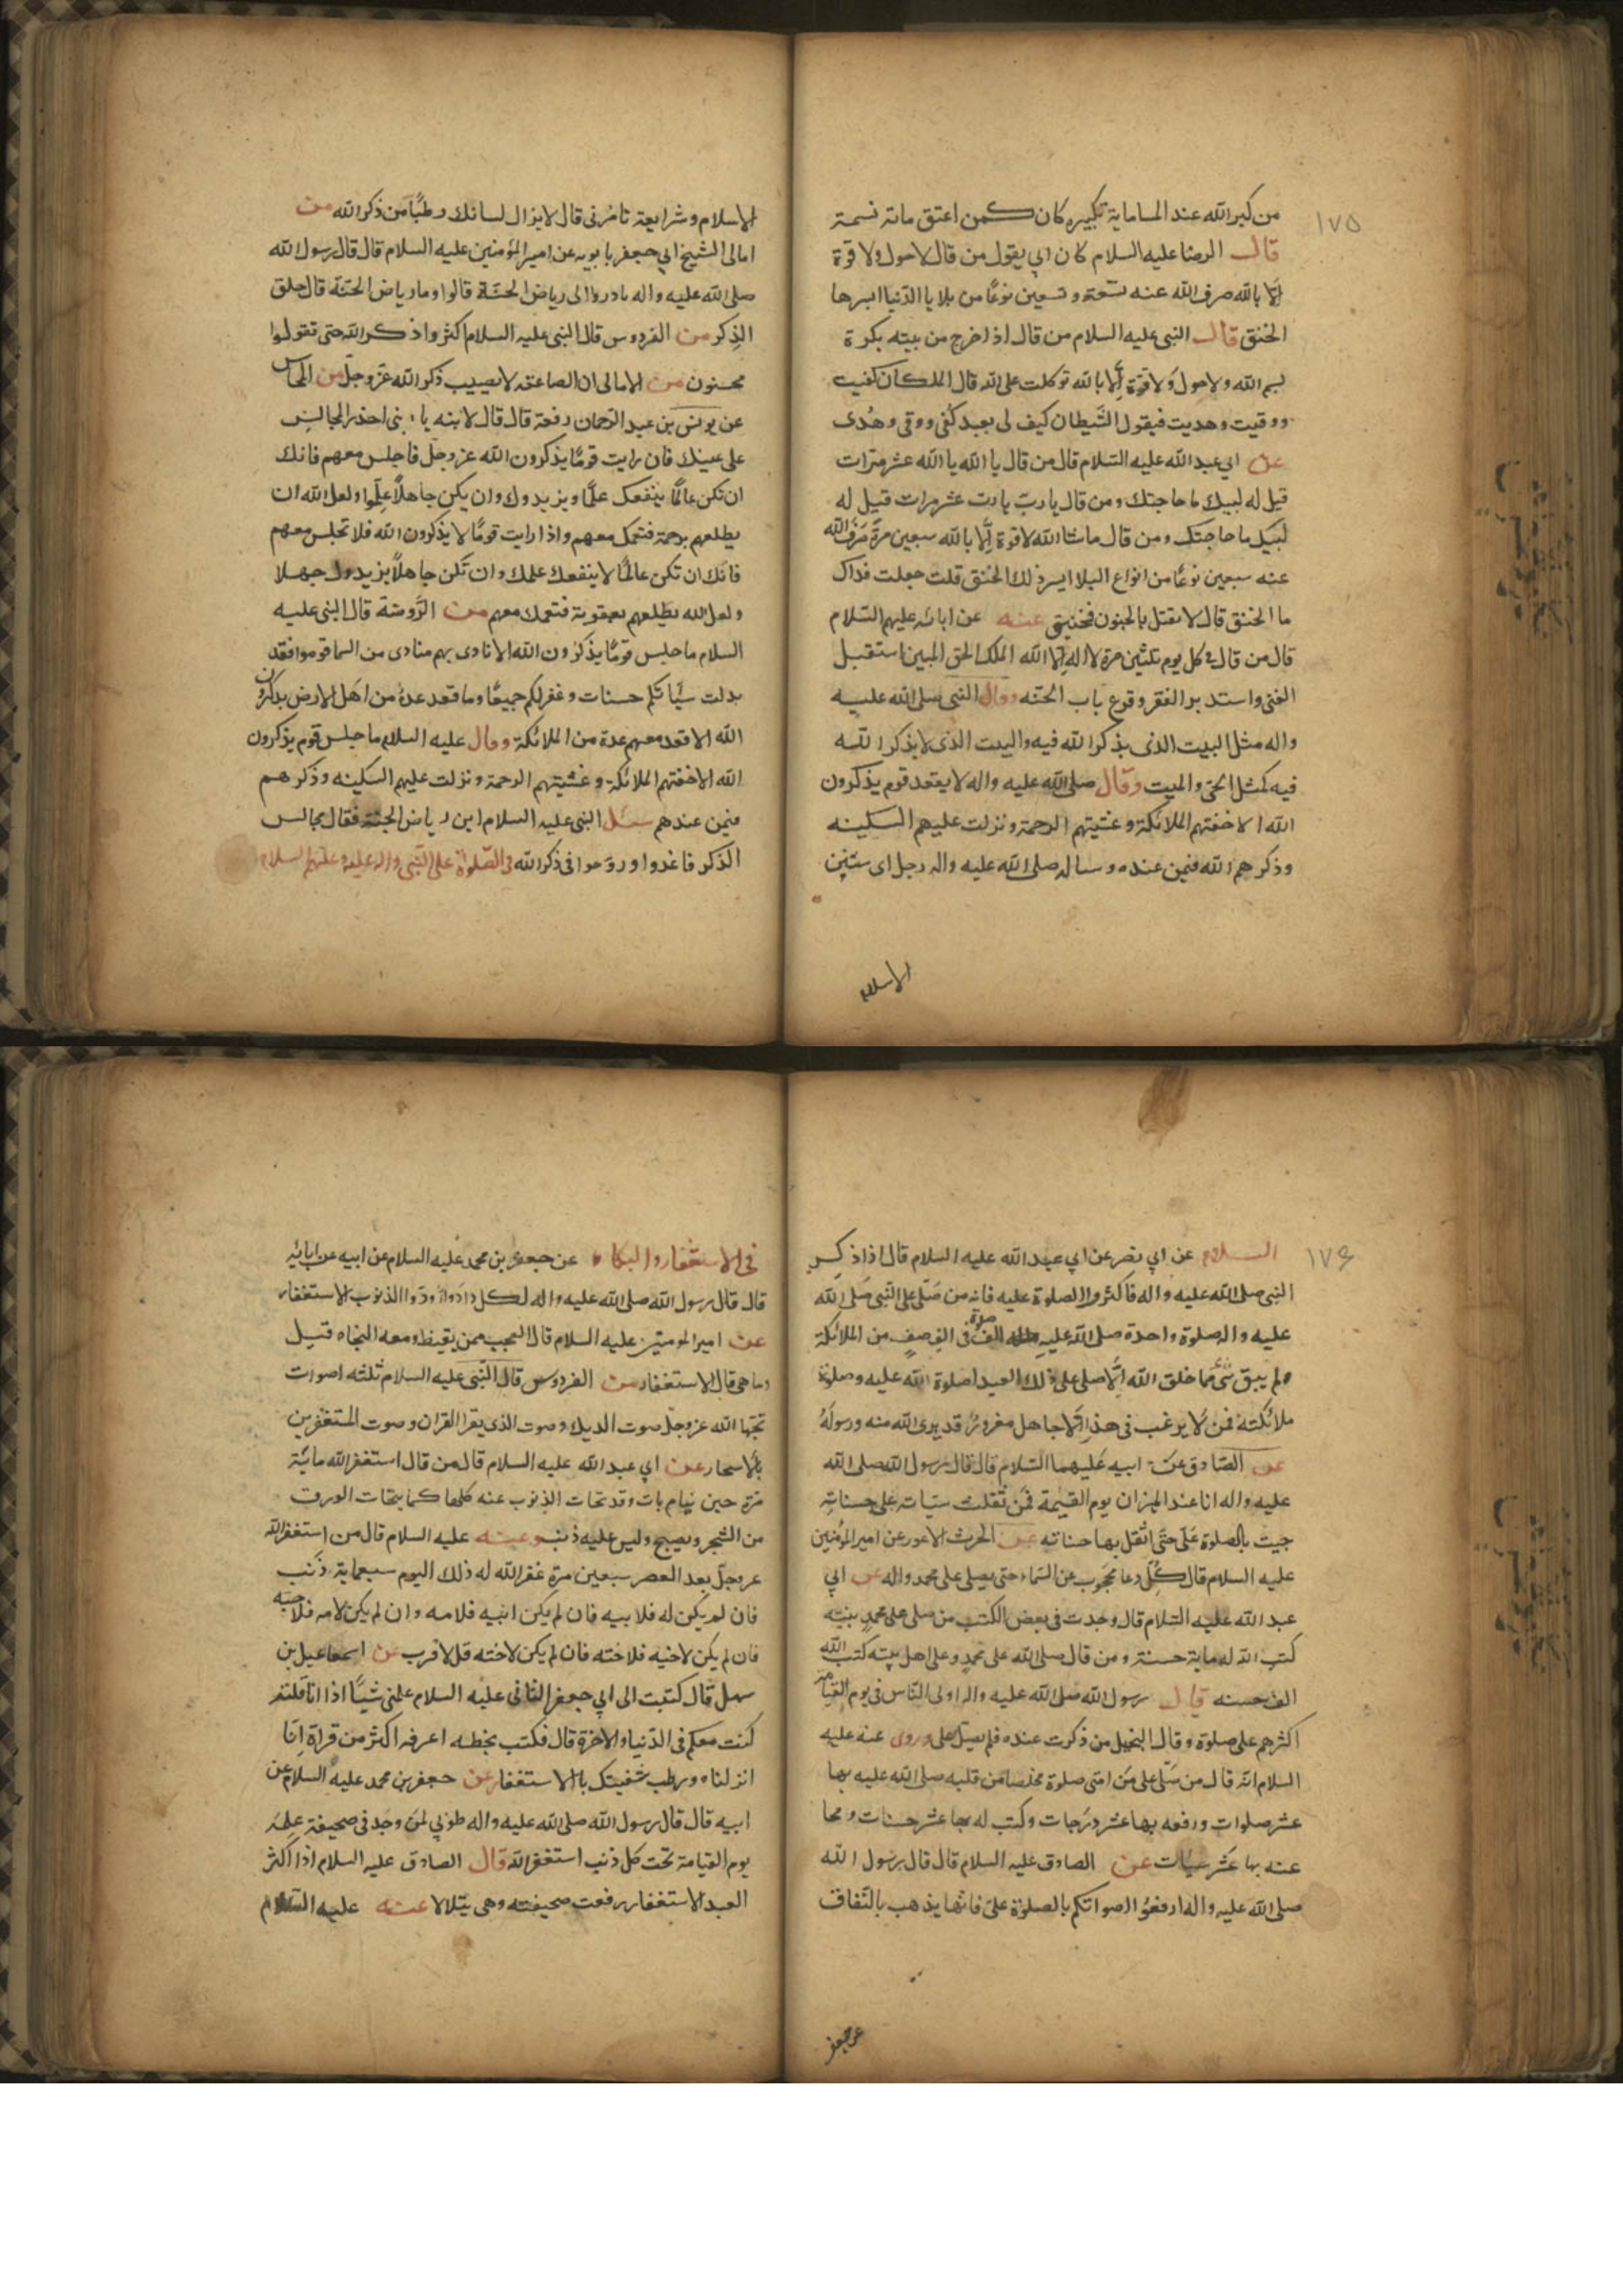 ١٧٥
من كبر الله عند المسا ماية تكبيره كان كمن اعتق مائة نسمة
قال الرضا عليه السلام كان ابي يقول من قال لا حول ولا قوة
الا بالله صرف الله عنه تسعة وتسعين نوعًا من بلايا الدّنيا ايسرها
الخنق قال النبي عليه السلام من قال اذا خرج من بيته بكرة
بسم الله ولا حول ولا قوّة اِلّا بالله توكلت على الله قال الملكان كفيت
ووقيت وهديت فيقول الشّيطان كيف لي بعبد كُفى ووقى وهُدى
عن ابي عبد الله عليه السّلام قال من قال يا الله يا الله عشر مرّات
قيل له لبيك ما حاجتك ومن قال يا ربّ يا ربّ عشر مرات قيل له
لبيك ما حاجتك ومن قال ما شا الله لا قوة اِلّا بالله سبعين مرةً صرف الله
عنه سبعين نوعًا من انواع البلا ايسر ذلك الخنق قلت جعلت فداك
ما الخنق قال لا يقتل بالجنون فيخنق عنه عن ابائه عليهم السّلام
قال من قال في كل يوم ثلثين مرة لا اله اِلا الله الملك الحق المبين استقبل
الغنى واستدبر الفقر وقرع باب الجنه وقال النبي صلى الله عليه
واله مثل البيت الذى يذكر الله فيه والبيت الذى لا يذكر الله
فيه كمثل الحىّ والميت وقال صلى الله عليه واله لا يقعد قوم يذكرون
الله الا خفتهم الملائكة وغشيتهم الرحمة ونزلت عليهم السكينه
وذكرهم الله فيمن عنده وساله صلى الله عليه واله رجل اى سنن
الاسلام
الاسلام وشرايعة تامُرنى قال لا يزال لسانك رطبًا من ذكر الله من
امالى الشيخ ابي جعفر بابويه عن امير المؤمنين عليه السلام قال قال رسول الله
صلى الله عليه واله بادروا الى رياض الجنّة قالوا وما رياض الجنّة قال حلق
الذِكر من الفردوس قال النبى عليه السلام اكثروا ذكر الله حتى تقولوا
مجنون من الامالى ان الصاعقه لا تصيب ذكر الله عزّ وجلّ من المحاسن
عن يونس بن عبد الرّحمان رفعة قال قال لابنه يا بنى احذر المجالس
على عينك فان رايت قومًا يذكرون الله عز وجلّ فاجلس معهم فانك
ان تكن عالمًا ينفعك علمًا ويزيدوك وان يكن جاهلًا علّموا ولعل الله ان
يطلعهم برحمة فتعمك معهم واذا رايت قومًا لا يذكرون الله فلا تجلس معهم
فانّك ان تكن عالمًا لا ينفعك علمك وان تكن جاهلًا يزيدوك جهلا
ولعل الله يطلعهم بعقوبة فتعمك معهم من الرّوضة قال النبى عليه
السلام ما جلس قومًا يذكرون الله الا نادى بهم منادى من السما قوموا فقد
بدلت سيّاتكم حسنات وغفر لكم جميعًا وما قعد عدةُ من اهل الارض يذكرون
الله الا قعد معهم عدة من الملائكة وقال عليه السلام ما جلس قوم يذكرون
الله الا خفتهم الملائكة وغشيتهم الرحمة ونزلت عليهم السكينه وذكرهم
فيمن عندهم سئل النبى عليه السلام اين رياض الجنّة فقال مجالس
الذكر فاغدوا وروحوا فى ذكر الله فى الصّلوة على النّبى واله عليه وعليهم السلام
١٧۶
السلام عن ابي بصر عن ابي عبد الله عليه السلام قال اذا ذكر
النبى صلى الله عليه واله فاكثروا الصلوة عليه فانه من صَلّى على النّبى صَلى الله
عليه واله صلوة واحدة صلى الله عليه الف صلوة فى الفِ صفٍ من الملائكة
ولم يبق شئ مما خلق الله اِلّا صلى على ذلك العبد لصلوة الله عليه وصلوة
ملائكته فمن لا يرغب فى هذا اِلّا جاهل مغرورُ قد برى الله منه ورسولهُ
عن الصّادق عن ابيه عَليهما السّلام قال قال رسول الله صلى الله
عليه واله انا عند الميزان يوم القيمة فمن ثقلت سيّاته على حسناتهِ
جيت بالصلوة عَلَى حتّى اثقل بها حسناته عن الحرث الاعور عن امير المؤمنين
عليه السلام قال كُلّ دعا محجوب عن السّماء حتى يصلى على محمد واله عن ابي
عبد الله عليه السّلام قال وجدت فى بعض الكتب من صلى على محمدٍ بنيّه
كتب الله له ماية حسنة ومن قال صلى الله على محمدٍ وعلى اهل بيته كتب الله
الف حسنه قال رسول الله صلى الله عليه واله اولى النّاس فى يوم القيامه
اكثرهم على صلوة وقال البخيل من ذكرت عنده فلم يصل على وروى عنه عليه
السلام انّه قال من صلّى علىّ من امّتى صلوة مخلصا من قلبه صلى الله عليه بها
عشر صلوات ورفعه بها عشر درجات وكتب له بها عشر حسنات ومحا
عنه بها عَشر سيّات عن الصادق عليه السلام قال قال رسول الله
صلى الله عليه واله ارفعوُا اصواتكم بالصلوة علىّ فانّها يذهب بالنّفاق
عن جعفر
فى الاستغفار والبكاء عن جعفر بن محمد عليه السلام عن ابيه عن ابائه
قال قال رسول الله صلى الله عليه واله لكل داء دواءُ ودَواا الذنوب الاستغفار
عن امير المومنين عليه السلام قال العجب ممن يقنط ومعه النجاه قيل
وما هى قال الاستغفار من الفردوس قال النّبى عليه السلام ثلثه اصوات
تحبّها الله عز وجلّ صوت الديك وصوت الذى يقرا القران وصوت المستغفرين
بالاسحار عن ابي عبد الله عليه السلام قال من قال استغفر الله مائة
مرة حين ينام بات وقد تحات الذنوب عنه كلها كما يتحات الورق
من الشجر ويصبح وليس عليه ذنب وعنه عليه السلام قال من استغفر الله
عز وجلّ بعد العصر سبعين مرة غفر الله له ذلك اليوم سبعماية ذَنب
فان لم يكن له فلابيه فان لم يكن ابيه فلامه وان لم يكن لامه فلاخيه
فان لم يكن لاخيه فلاخته فان لم يكن لاخته فلاقرب عن اسمعاعيل بن
سهل قال كتبت الى ابي جعفر الثانى عليه السلام علمنى شيئًا اذا انا قلته
كنت معكم فى الدّنيا والاخرة قال فكتب بخطه اعرفه اكثر من قراة اِنّا
انزلناه ورطب شفيتك بالاستغفار عن جعفر بن محمد عليه السلام عن
ابيه قال قال رسول الله صلى الله عليه واله طوبي لمن وجد فى صحيفة عمله
يوم القيامة تحت كل ذنب استغفر الله قال الصادق عليه السلام اذا اكثر
العبد الاستغفار رفعت صحيفته وهى يتلالا عنه عليه السّلام